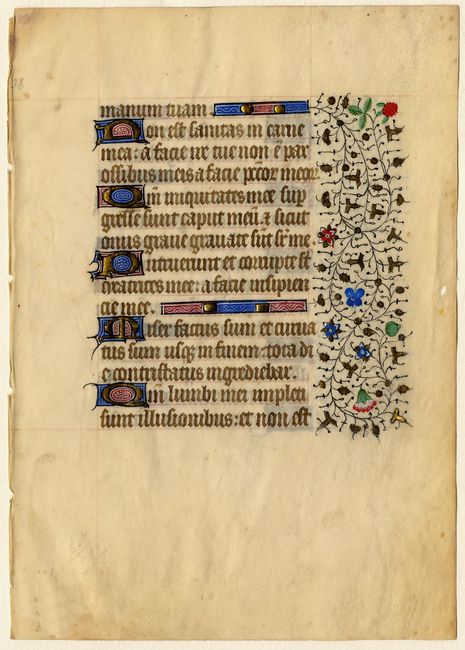 manum tuam
Non est sanitas in carne
mea: a facie ire tue non e pax
ossibus meis a facie pctor meor
Qm iniquitates mee sup
gresse sunt caput meu: & sicut
onus grave gravate sut sr me
Putruerunt et corrupte st
cicatrices mee: a facie insipien
cie mee.
Miser factus sum et curva
tus sum usq in finem: tota di
e contristatus ingrediebar.
Qm lumbi mei impleti
sunt illusionibus: et non est